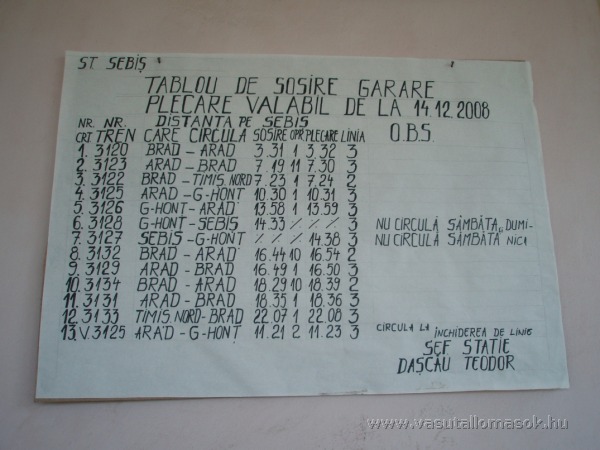 ST. SEBIȘ
TABLOU DE SOSIRE GARARE
PLECARE VALABIL DE LA 14.12.2008
NR. NR. DISTANȚA PE SEBIS
CRT TREN CARE CIRCULA SOSIRE OPR PLECARE LINIA O.B.S.
1. 3120 BRAD - ARAD 3.31 1 3.32 3
2. 3123 ARAD - BRAD 7.19 11 7.30 3
3. 3122 BRAD - TIMIS. NORD 7.23 1 7.24 2
4. 3125 ARAD - G-HONT 10.30 1 10.31 3
5. 3126 G-HONT - ARAD 13.58 1 13.59 3
6. 3128 G-HONT - SEBIS 14.33 % % 3 NU CIRCULĂ SÂMBĂTA, DUMI-
7. 3127 SEBIS - G-HONT % % 14.38 3 NU CIRCULĂ SÂMBĂTA NICI
8. 3132 BRAD - ARAD 16.44 10 16.54 2
9. 3129 ARAD - BRAD 16.49 1 16.50 3
10. 3134 BRAD - ARAD 18.29 10 18.39 2
11. 3131 ARAD - BRAD 18.35 1 18.36 3
12. 3133 TIMIS NORD - BRAD 22.07 1 22.08 3
13. V. 3125 ARAD - G-HONȚ 11.21 2 11.23 3 CIRCULA LA ÎNCHIDEREA DE LINIE
ȘEF STATIE
DAȘCĂU TEODOR
http://www.vasutallomasok.hu